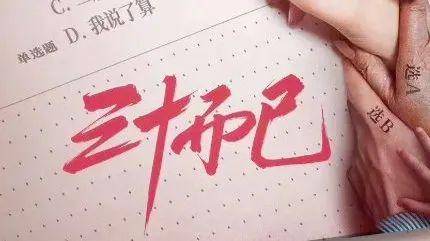 单选题
D. 我说了算
三十而已
选A
选B